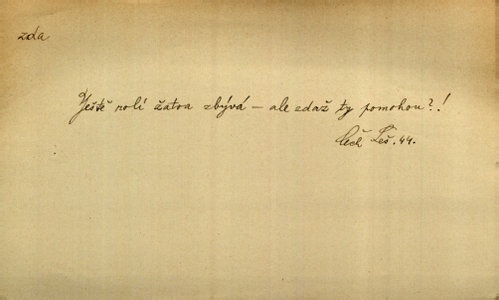 zda
Ještě rolí žatva zbývá – ale zdaž ty pomohou?!
Čech Leš. 44.